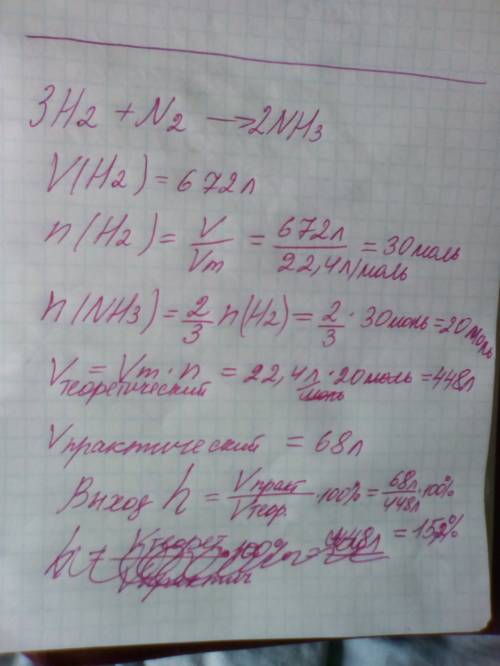 3H2 + N2 → 2NH3
V(H2) = 672л
n(H2) = V/Vm = 672л/22,4л/моль = 30моль
n(NH3) = 2/3 n(H2) = 2/3 · 30моль = 20моль
Vтеоретический = Vm · n = 22,4л/моль · 20моль = 448л
Vпрактический = 68л
Выход h = Vпракт/Vтеор. · 100% = 68л/448л · 100%
= 15,2%